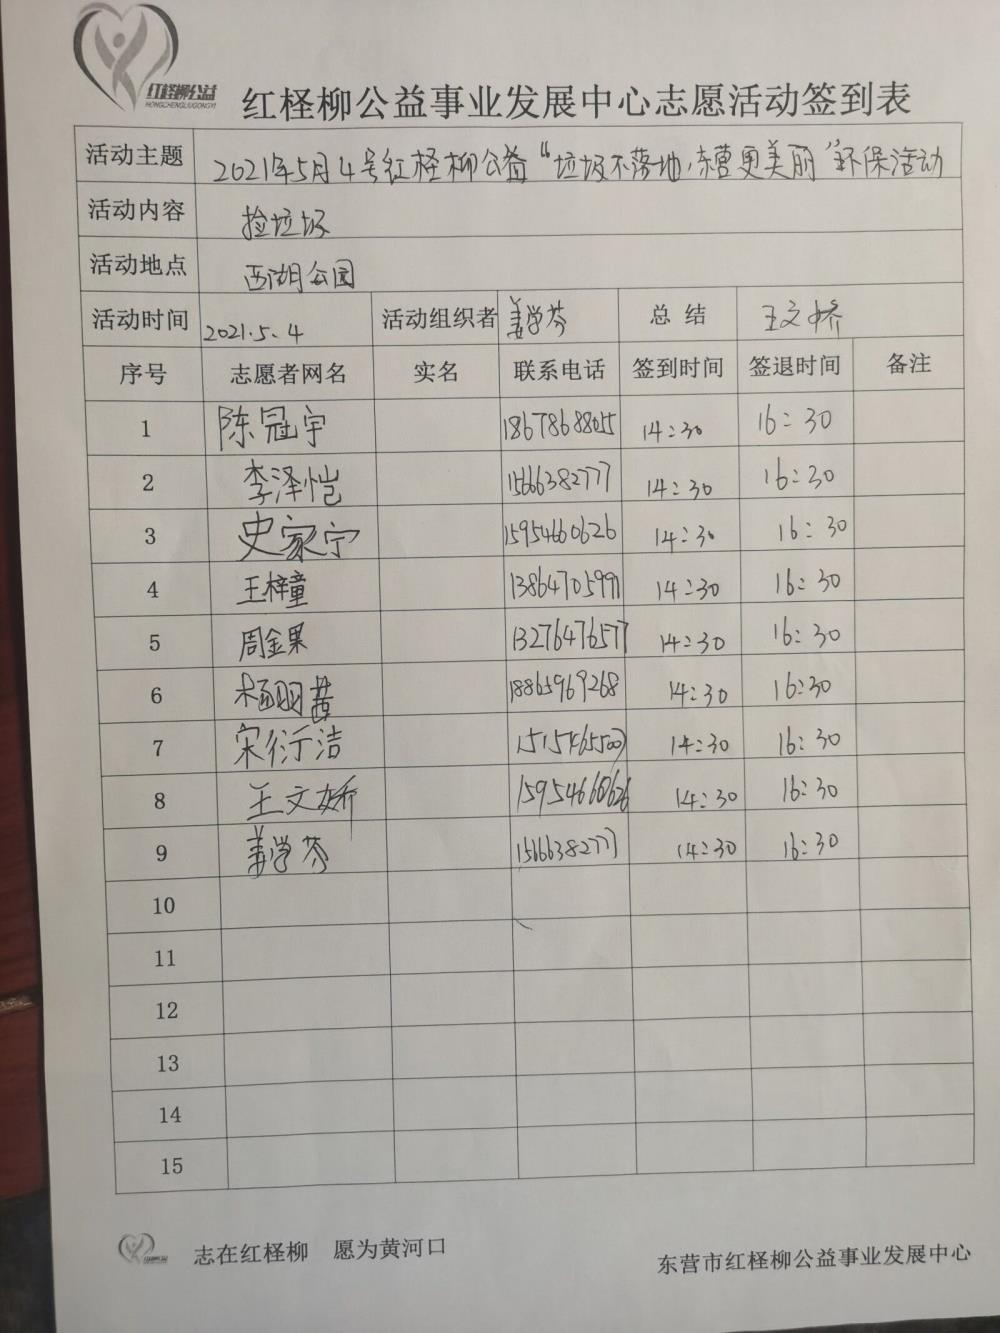 红柽柳公益
HONGCHENGLIUGONGYI
红柽柳公益事业发展中心志愿活动签到表
活动主题 2021年5月4号红柽柳公益“垃圾不落地，东营更美丽”环保活动
活动内容 捡垃圾
活动地点 西湖公园
活动时间 2021.5.4 活动组织者 姜学芬 总结 王文娇
序号 志愿者网名 实名 联系电话 签到时间 签退时间 备注
1 陈冠宇 18678688055 14:30 16:30
2 李泽恺 15666382777 14:30 16:30
3 史家宁 15954660626 14:30 16:30
4 王梓童 13864705991 14:30 16:30
5 周金果 13276476577 14:30 16:30
6 杨明茜 18865969268 14:30 16:30
7 宋衍洁 14:30 16:30
8 王文娇 15954660626 14:30 16:30
9 姜学芬 15666382777 14:30 16:30
10
11
12
13
14
15
志在红柽柳 愿为黄河口
东营市红柽柳公益事业发展中心